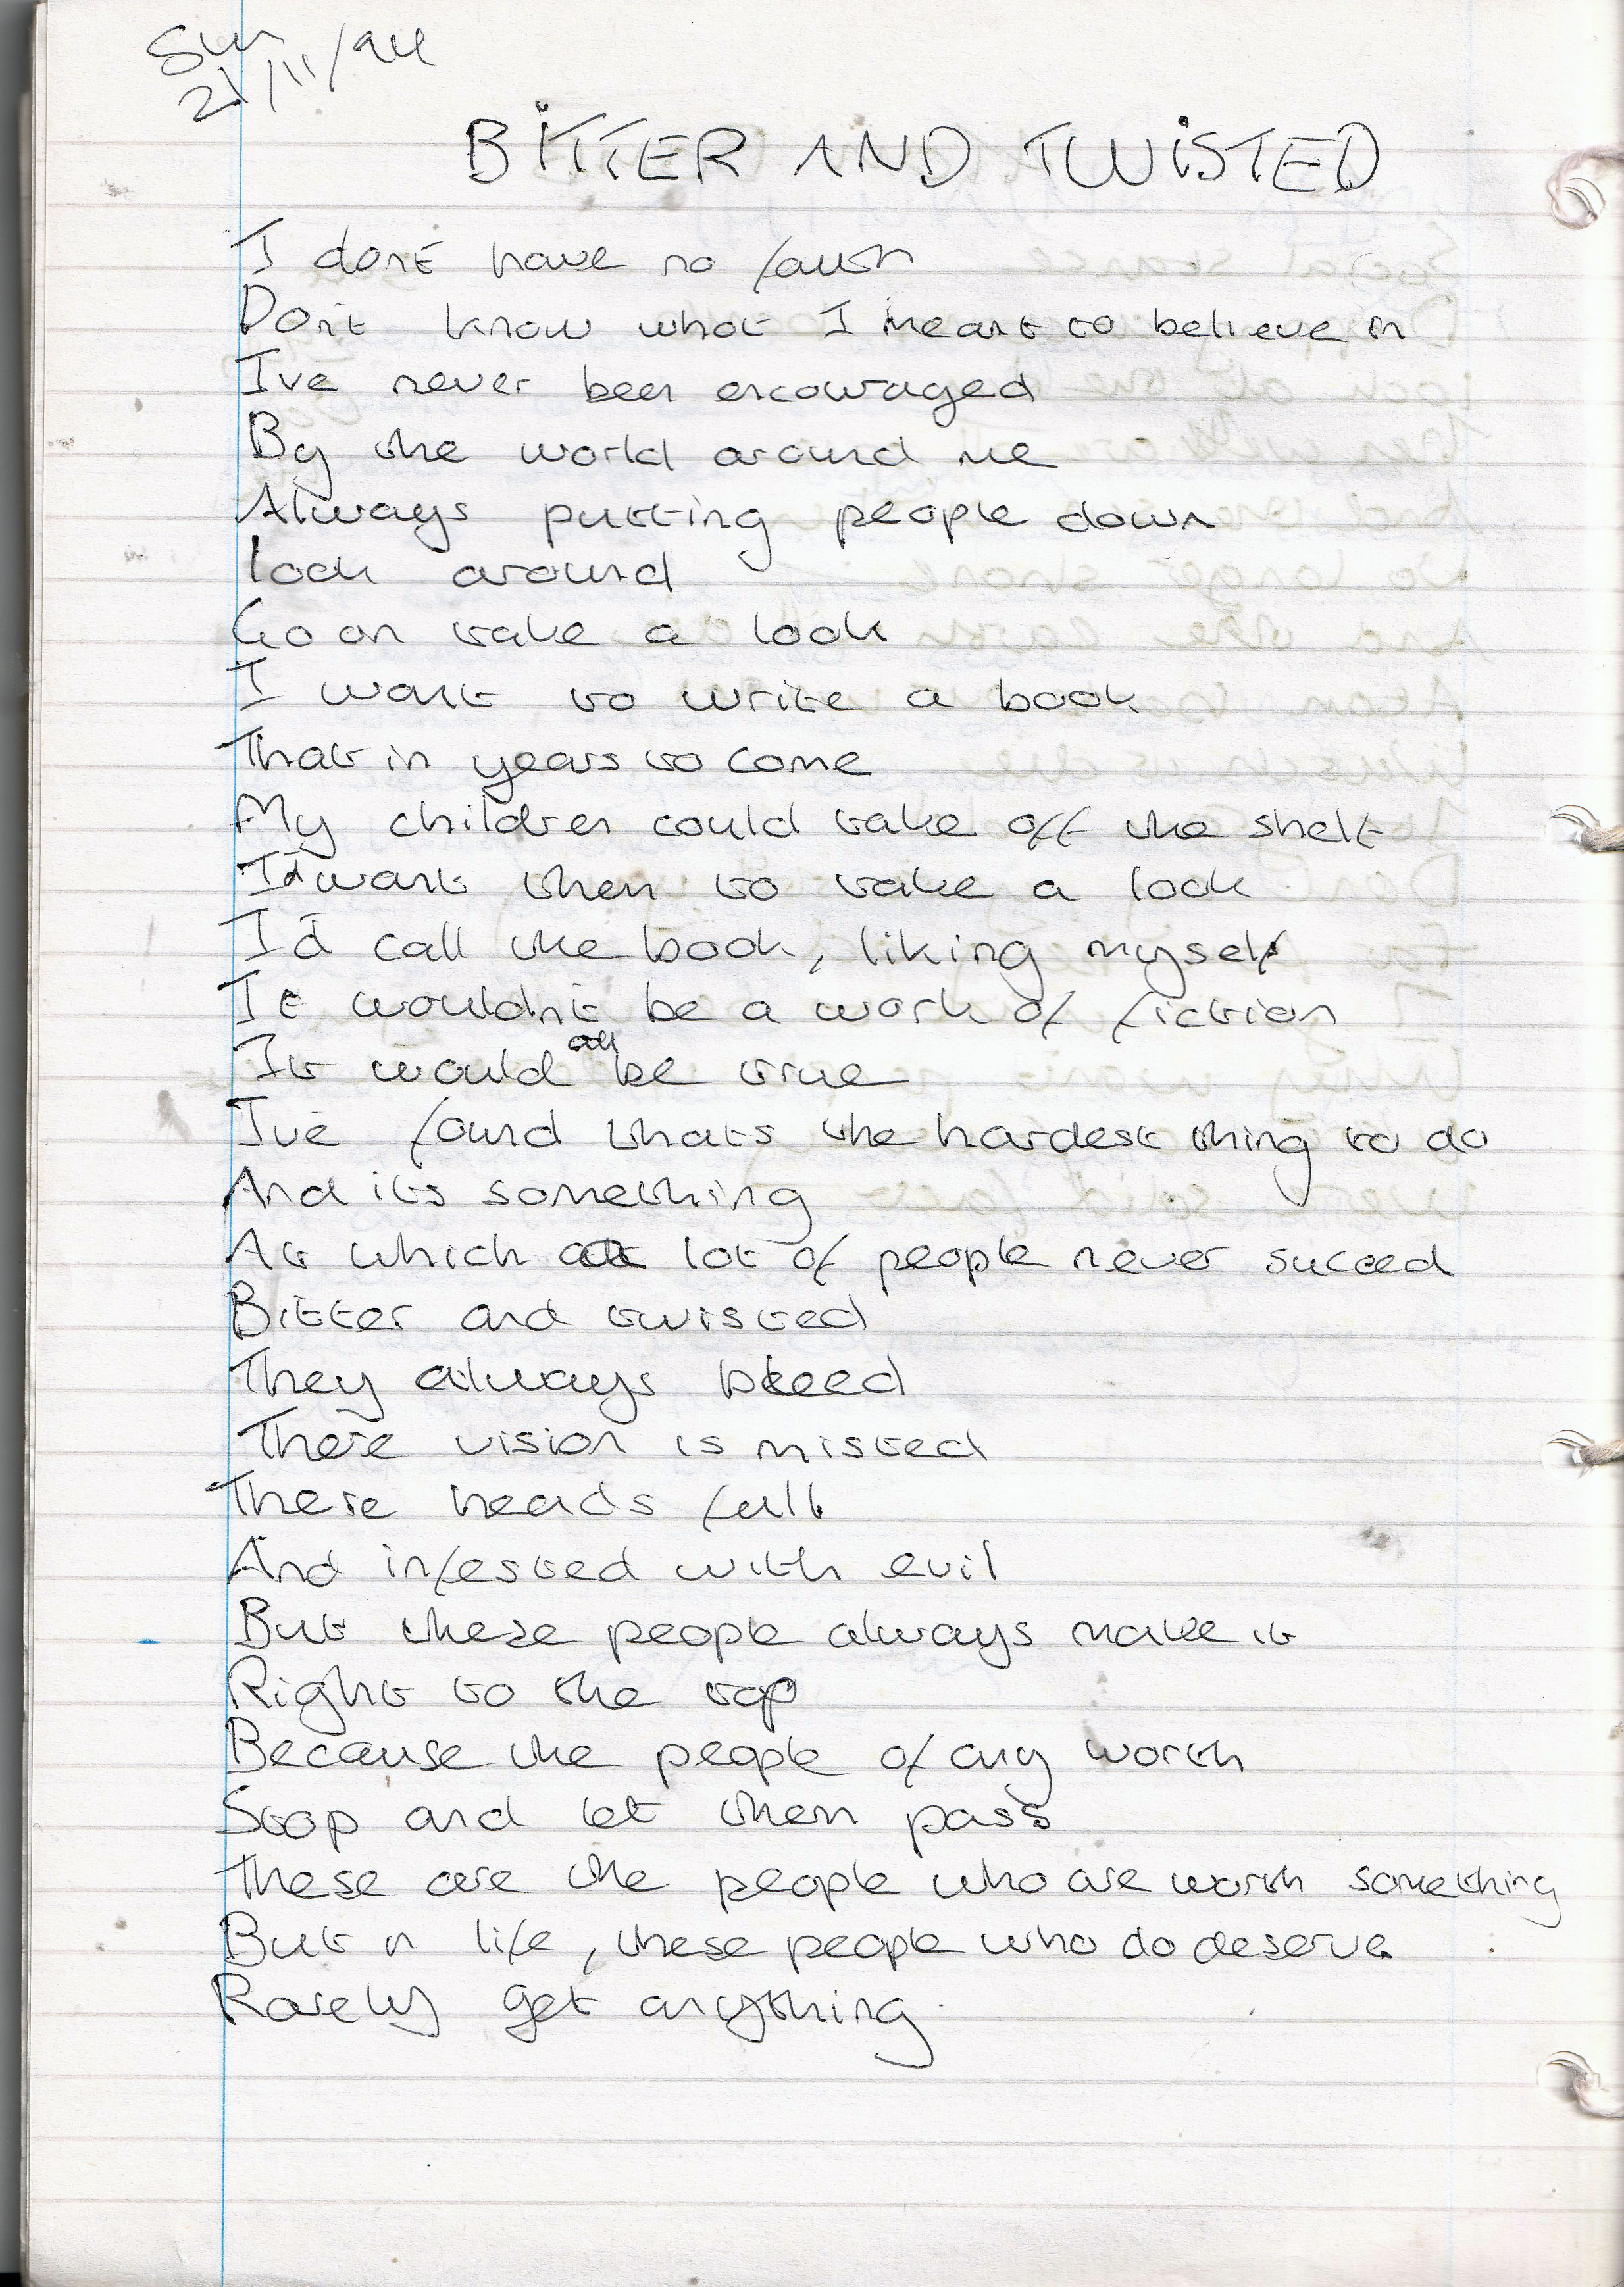 Sun
21/11/94
BITTER AND TWISTED
I dont have no faith
Dont know what I meant to believe in
I've never been encouraged
By the world around me
Always putting people down
look around
Go on take a look
I want to write a book
That in years to come
My children could take off the shelf
I'd want them to take a look
I'd call the book, liking myself
It wouldn't be a work of fiction
It would all be true
I've found thats the hardest thing to do
And its something
At which a lot of people never suceed
Bitter and twisted
They always bleed
There vision is misted
There heads full
And infested with evil
But these people always make it
Right to the top
Because the people of any worth
Stop and let them pass
These are the people who are worth something
But in life, these people who do deserve
Rarely get anything.